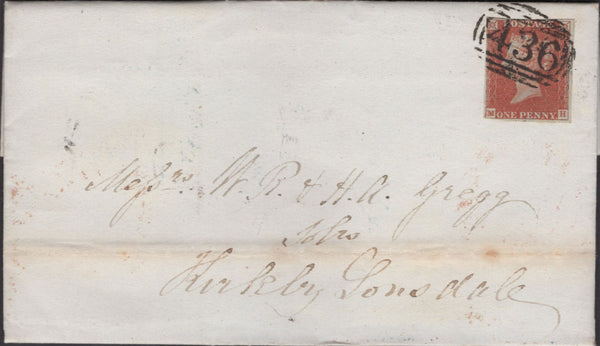 436
POSTAGE
ONE PENNY
M H
Messrs W. R. & H. A. Gregg
Solrs
Kirkby Lonsdale